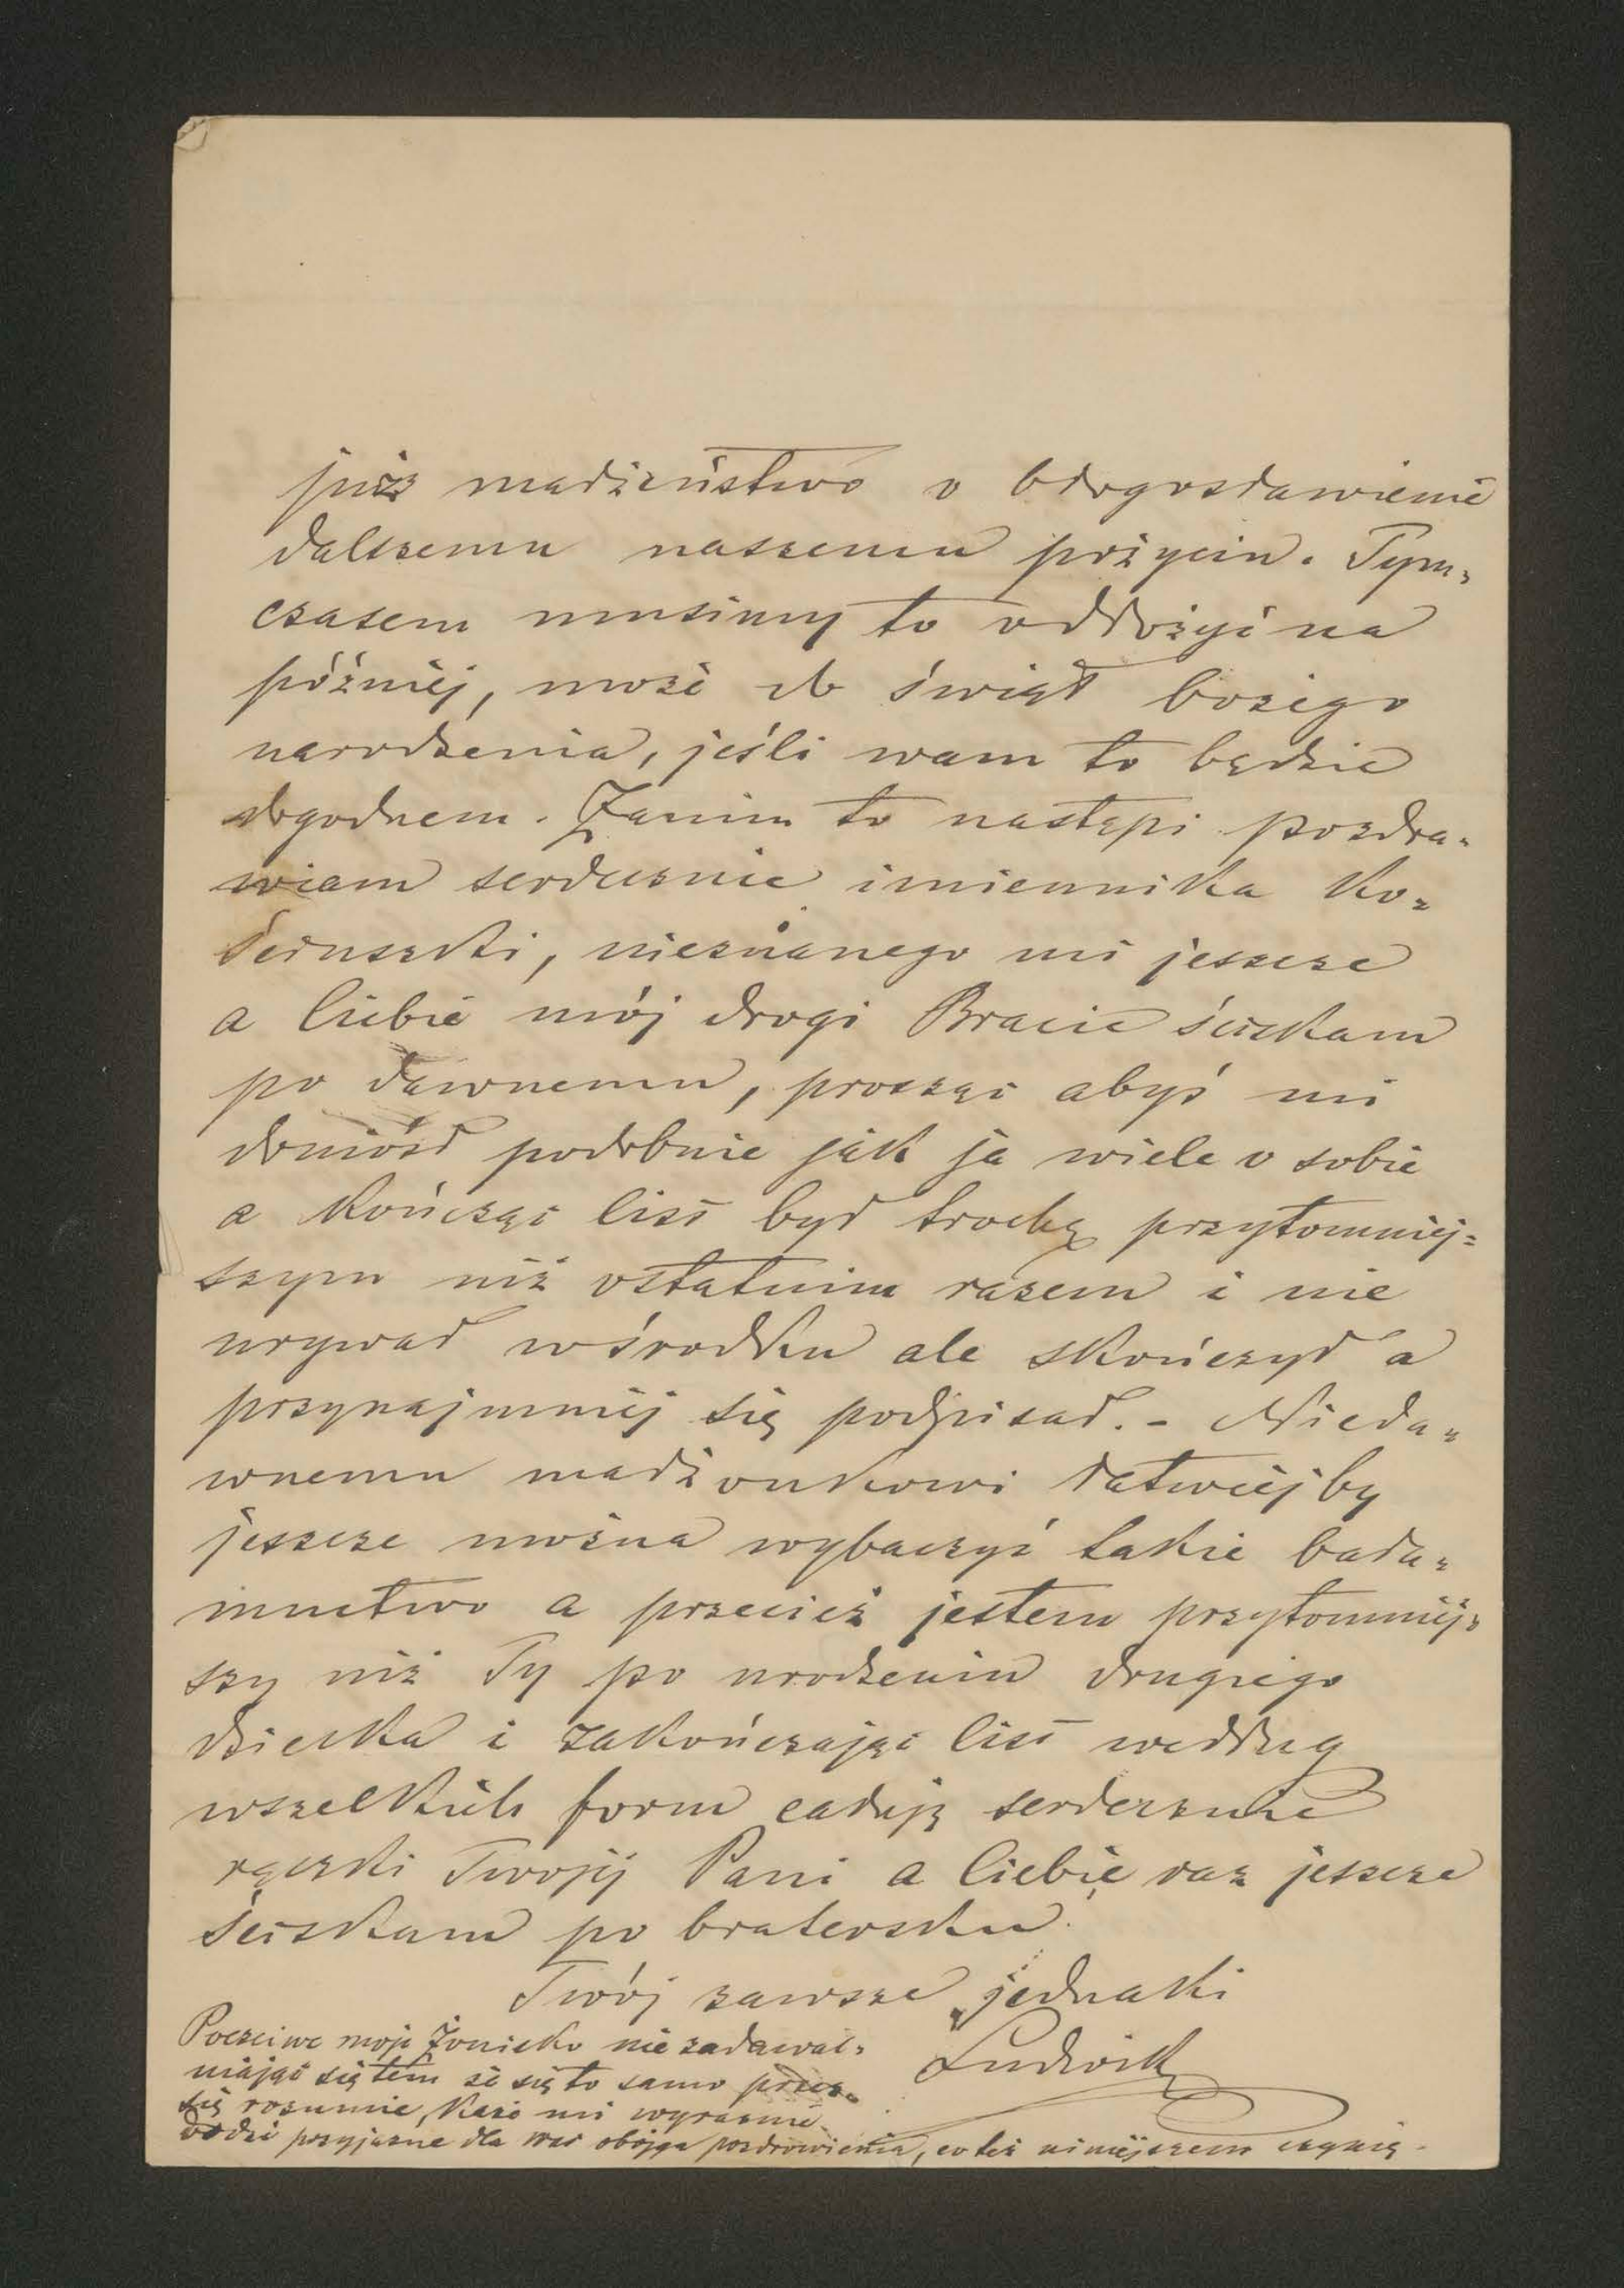 już małżeństwo o błogosławienie
dalszemu naszemu pożyciu. Tym-
czasem musimy to odłożyć na
później, może do świąt bożego
narodzenia, jeśli wam to będzie
dogodnem. Zanim to nastąpi pozdra-
wiam serdecznie imiennika Ko-
ściuszki, nieznanego mi jeszcze
a Ciebie mój drogi Bracie ściskam
po dawnemu, prosząc abyś mi
doniósł podobnie jak ja wiele o sobie
a kończąc list był trochę przytomniej-
szym niż ostatnim razem i nie
urywał wśrodku ale skończył a
przynajmniej się podpisał. - Nieda-
wnemu małżonkowi łatwiej by
jeszcze można wybaczyć takie bała-
muctwo a przecież jestem przytomniej-
szy niż Ty po urodzeniu drugiego
dziecka i zakończając list według
wszelkich form całuję serdecznie
rączki Twojéj Pani a Ciebie raz jeszcze
ściskam po bratersku.
Twój zawsze jednaki
Ludwik
Poczciwe moje Żoniсko nie zadawal-
niając się tem że się to samo przez
się rozumie, każe mi wyraźnie
oddać przyjazne dla Was obojga pozdrowienia, co też niniejszem czynię.